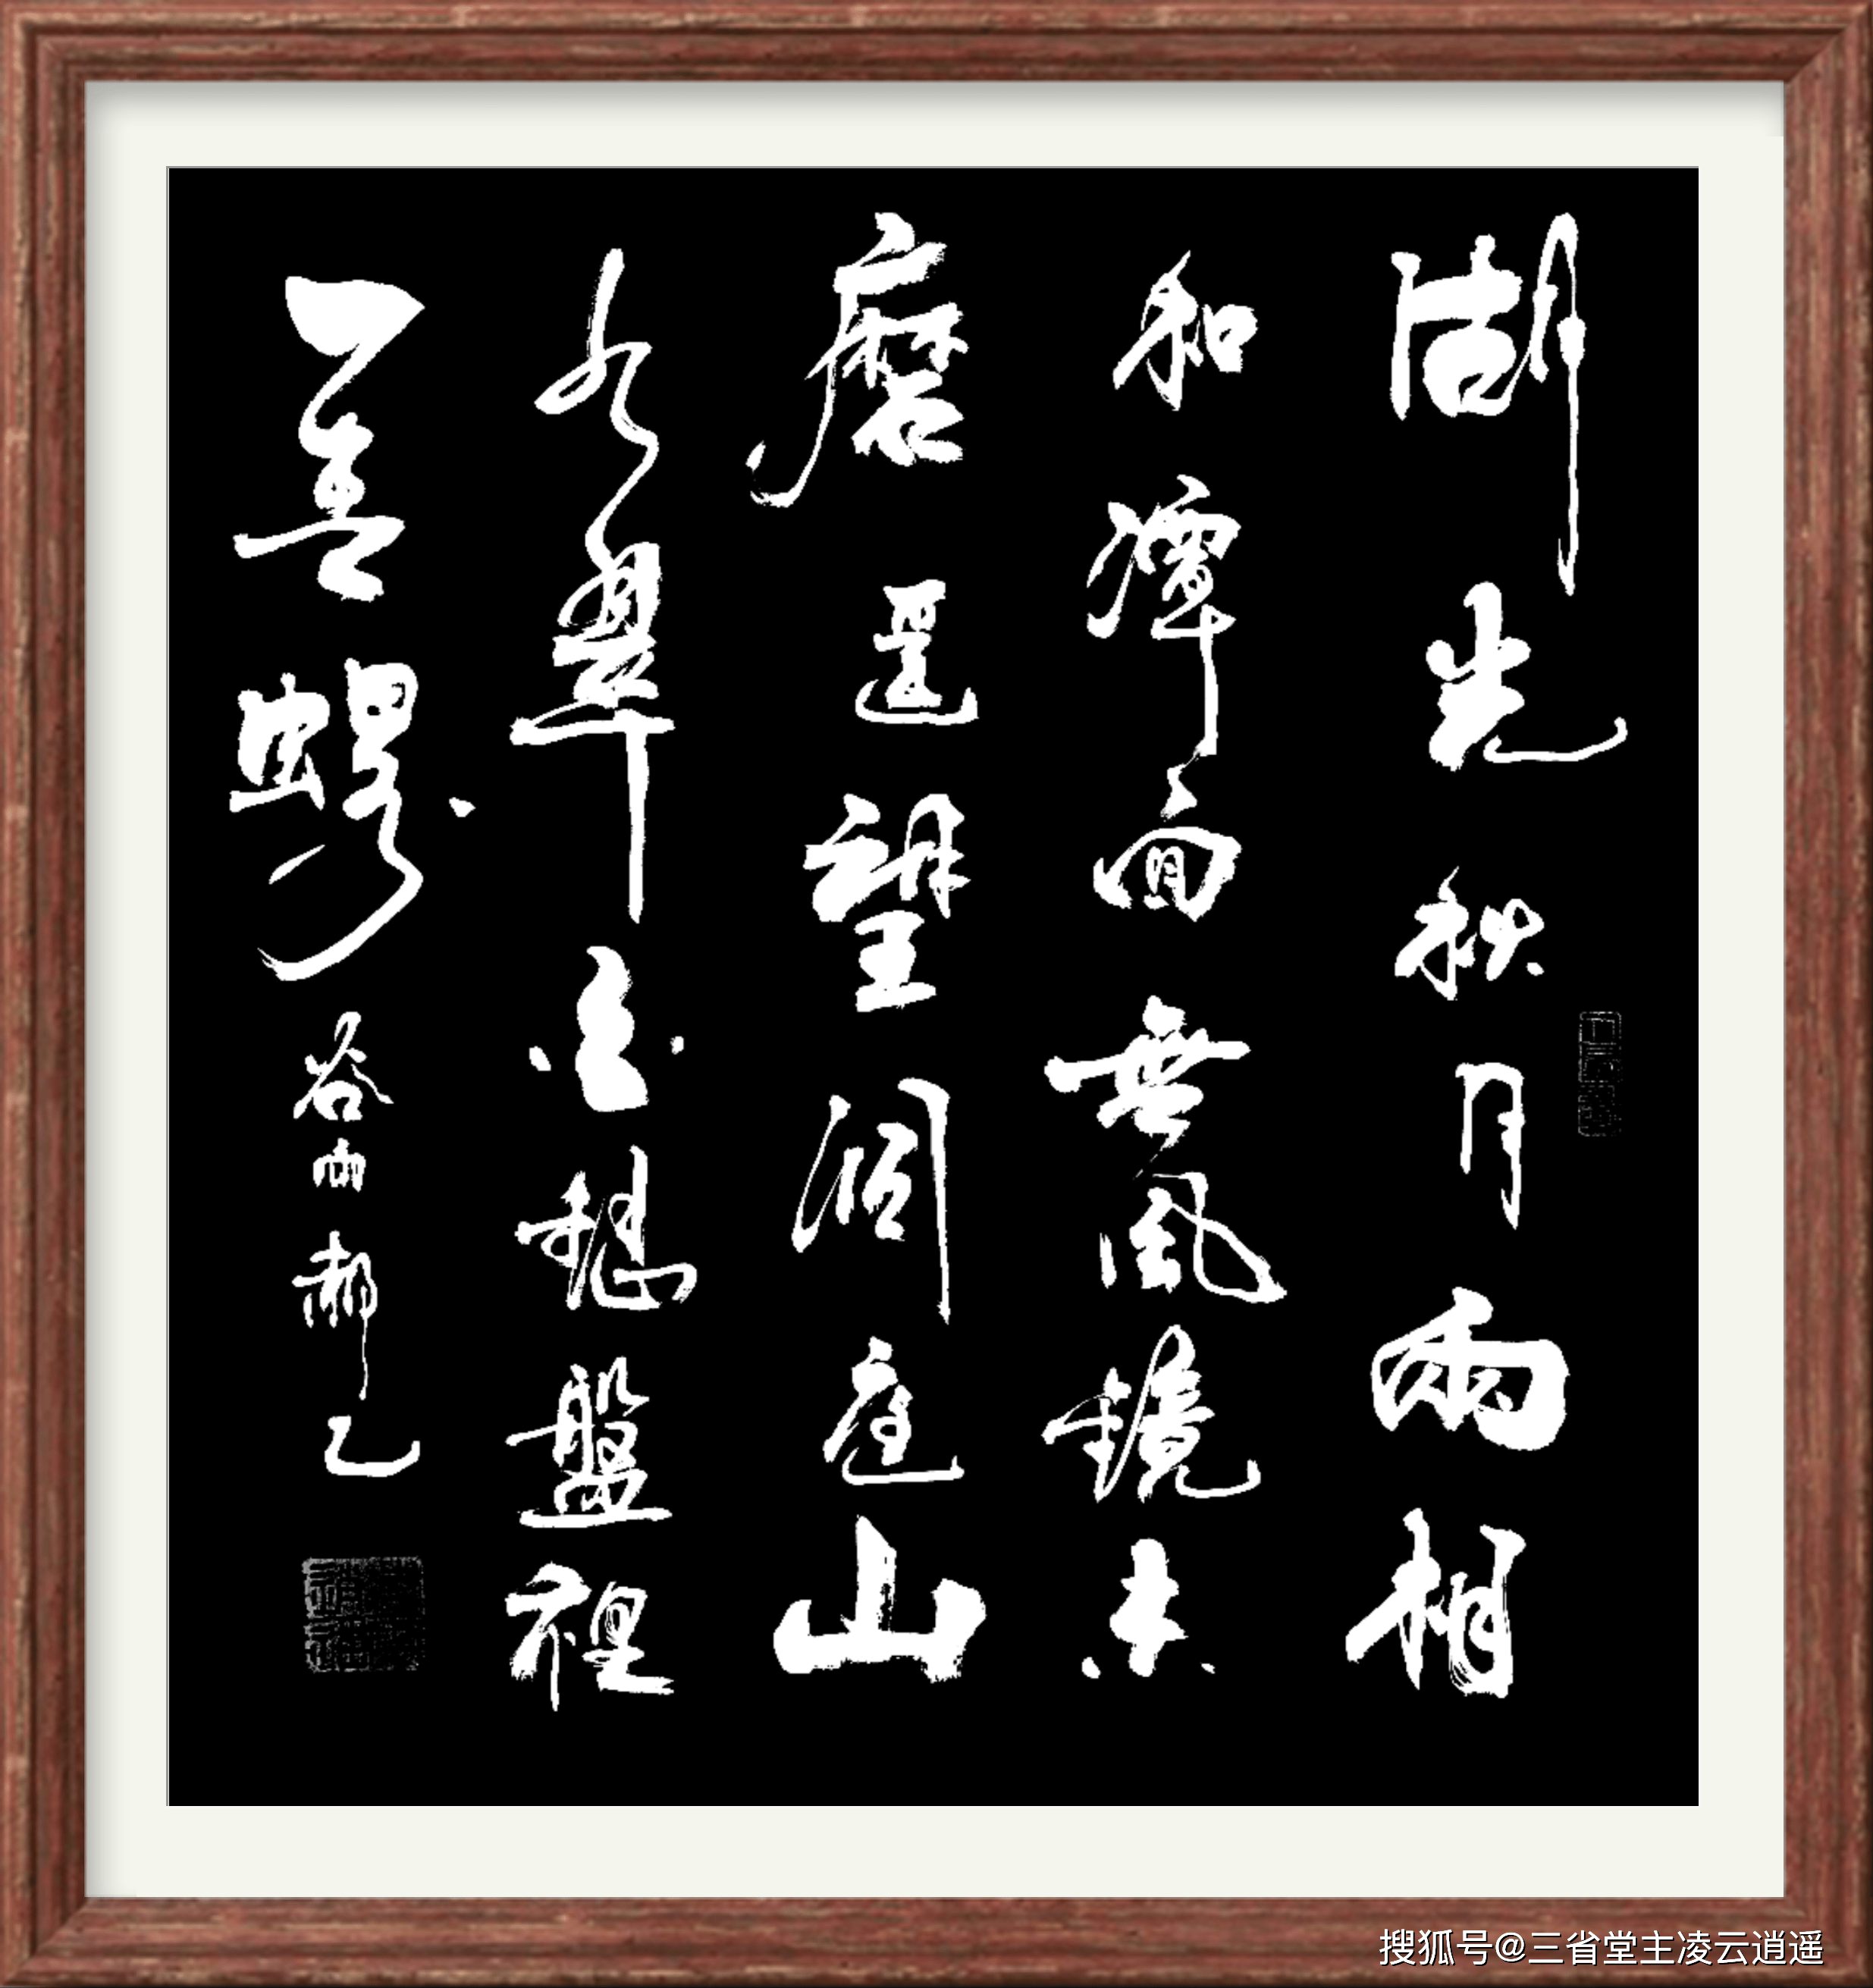 湖光秋月兩相
和潭面無風鏡未
磨遥望洞庭山
水翠白銀盤裡
一青螺 谷雨 郝乙
搜狐号@三省堂主凌云逍遥